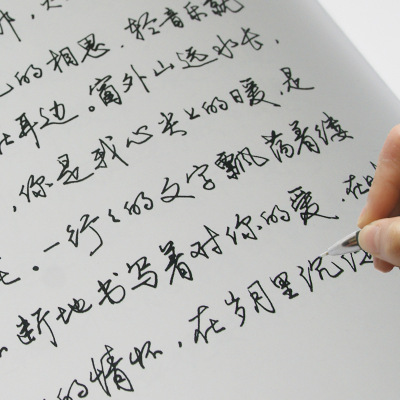 心的相思,轻音乐就
在耳边。窗外山远水长,
,你是我心尖上的暖,是
。一行行的文字飘荡着缕
断地书写着对你的爱.在时
的情怀,在岁月里沉